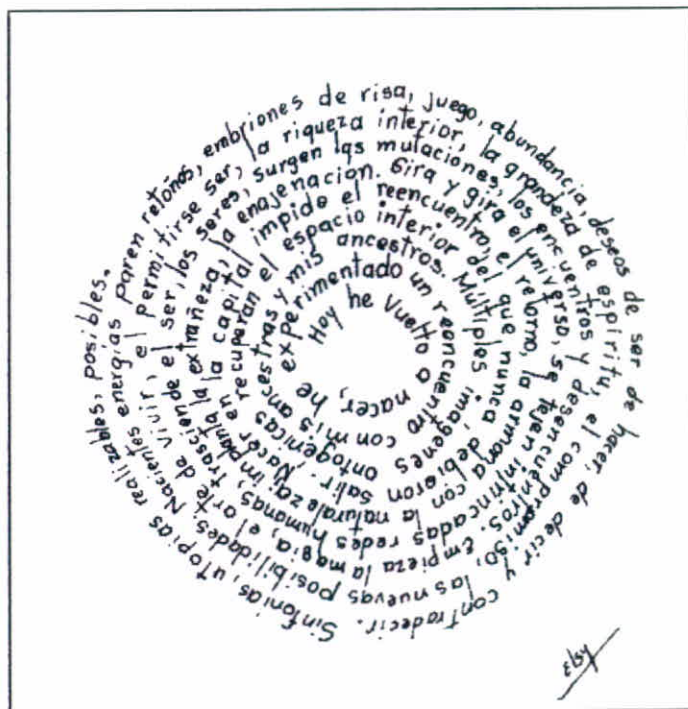 Hoy he Vuelto a nacer, he experimentado un reencuentro con mis ancestras y mis ancestros. Multiples imagenes ontogénicas recuperan el espacio interior del que nunca debieron salir. Nacer en la capital impide el reencuentro, el retorno, la armonía con la naturaleza; implanta la extrañeza, la enajenacion. Gira y gira el universo, se tejen intrincadas redes humanas, trasciende el ser, los seres, surgen las mutaciones, los encuentros y desencuentros. Empieza la magia, el arte de vivir, el permitirse ser, la riqueza interior, la grandeza de espiritu, el compromiso, las nuevas posibilidades. Nacientes energías paren retoños, embriones de risa, juego, abundancia, deseos de ser de hacer, de decir y contradecir. Sinfonías, utopias realizables, posibles.